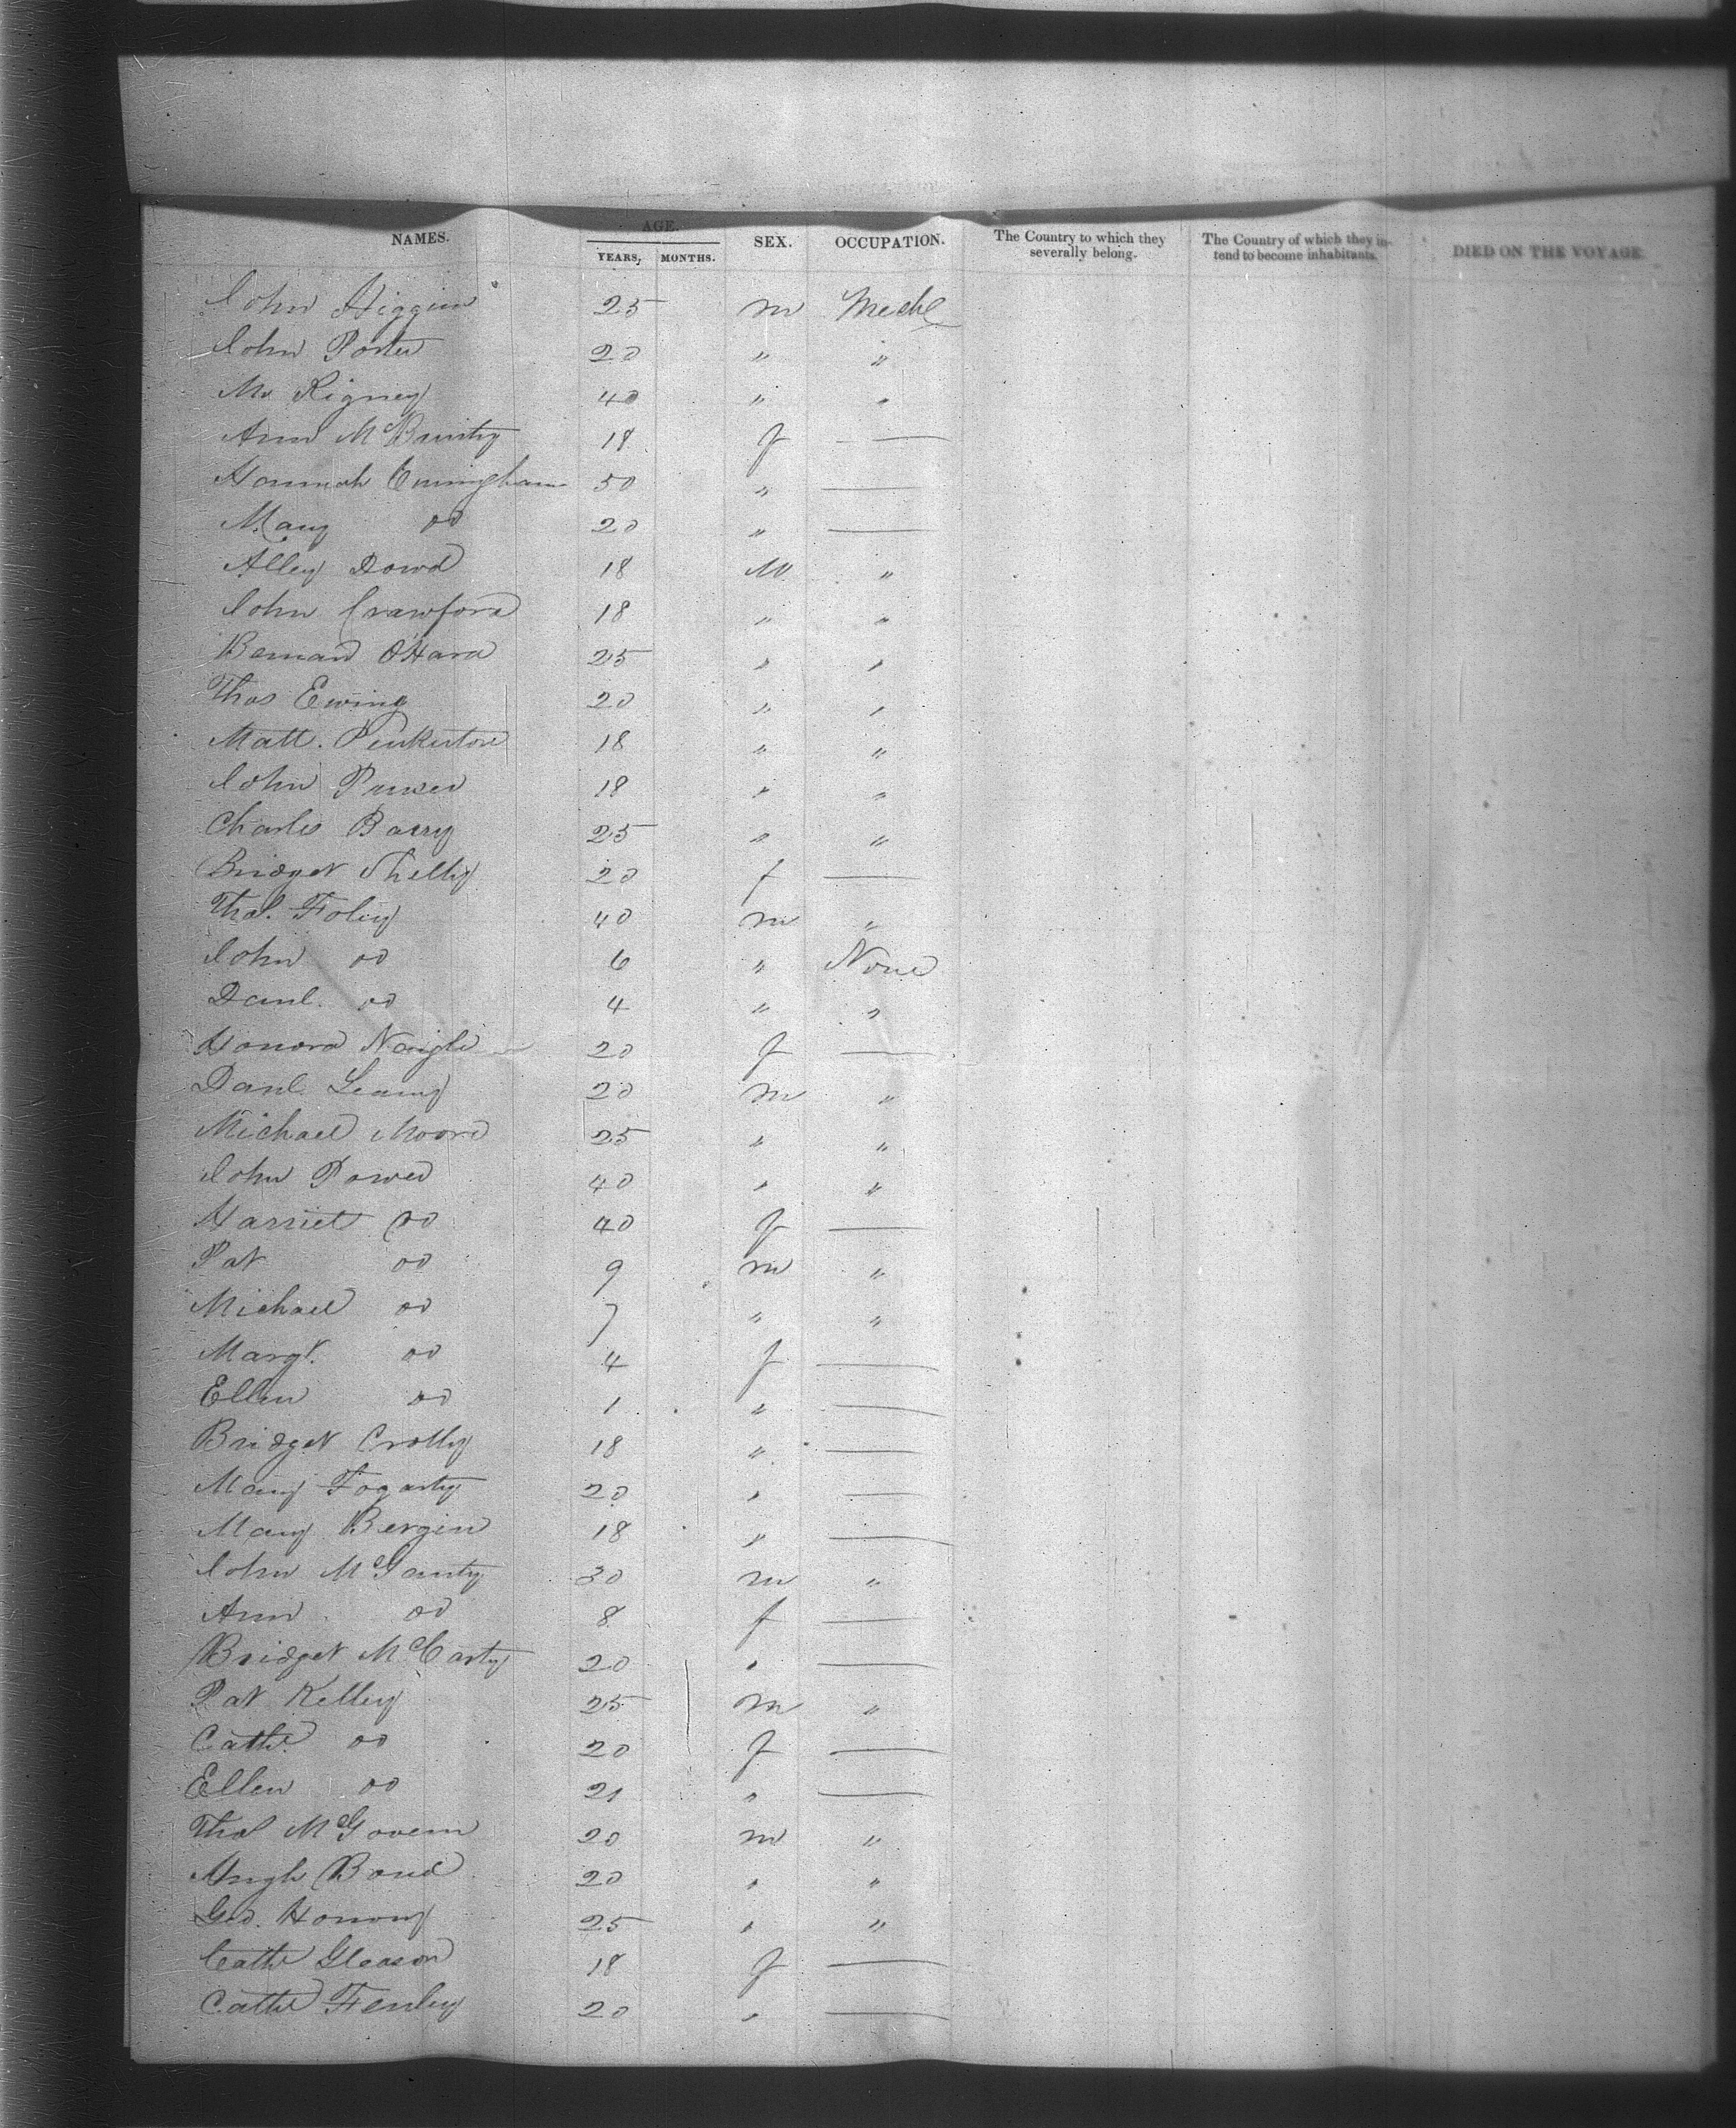 NAMES. AGE. YEARS, MONTHS. SEX. OCCUPATION. The Country to which they severally belong. The Country of which they intend to become inhabitants. DIED ON THE VOYAGE.
John Higgins 25 m Mechc
John Porter 20 " "
Mr Rigney 40 " "
Ann 18 f —
Hannah Cuningham 50 " —
Mary do 20 " —
Alley Dowd 18 M "
John Crawford 18 " "
Bernard O'Hara 25 " "
Thos Ewing 20 " "
Matt. Pinkerton 18 " "
John 18 " "
Charles Barry 25 " "
Bridget Shelly 20 f —
Thos. Foley 40 m "
John do 6 " None
Danl. do 4 " "
Honora Naigle 20 f —
Danl. Leary 20 m "
Michael Moore 25 " "
John Power 40 " "
Harriet do 40 f —
Pat do 9 m "
Michael do 7 " "
Margt. do 4 f —
Ellen do 1 " —
Bridget Crotty 18 " —
Mary Fogarty 20 " —
Mary Bergin 18 " —
John McGanty 30 m "
Ann do 8 f —
Bridget McCarty 20 " —
Pat Kelley 25 m "
Cathe do 20 f —
Ellen do 21 " —
Thos McGovern 20 m "
Hugh Bond 20 " "
Geo. 25 " "
Cathe Gleason 18 f —
Cathe Fenley 20 " —